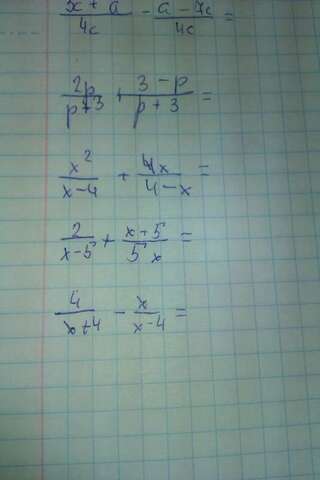 x + a / 4c - a - 7c / 4c =
2p / p+3 + 3 - p / p + 3 =
x² / x-4 + 4x / 4-x =
2 / x-5 + x+5 / 5 x =
4 / x+4 - x / x-4 =